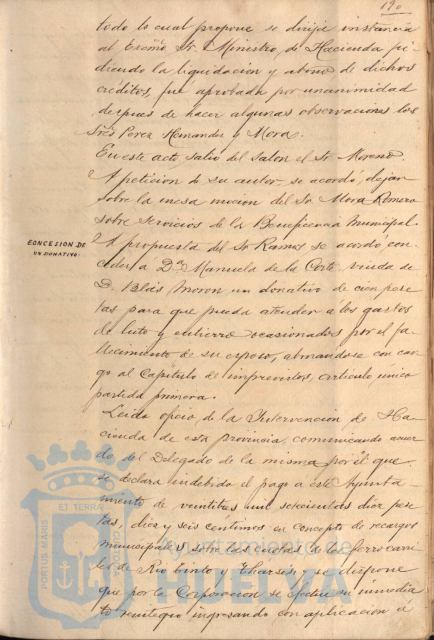 190
todo lo cual propone se dirija instancia
al Excmo Sr. Ministro de Hacienda pi-
diendo la liquidacion y abono de dichos
créditos, fue aprobada por unanimidad
despues de hacer algunas observaciones los
Sres Perez Hernandez y Mora.
En este acto salio del salon el Sr. Moreno.
A peticion de su autor, se acordó dejar
sobre la mesa mocion del Sr. Mora Romero
sobre servicios de la Beneficencia Municipal.
CONCESION DE
UN DONATIVO.
A propuesta del Sr Ramos se acordo con-
ceder a Dª Manuela de la Corte viuda de
D. Blás Moron un donativo de cien pese-
tas para que pueda atender á los gastos
de luto y entierro ocasionados por el fa-
llecimiento de su esposo, abonandose con car-
go al Capítulo de imprevistos, artículo único
partida primera.
Leido oficio de la Intervencion de Ha-
cienda de esta provincia, comunicando acuer-
do del Delegado de la misma por el que
se declara indebido el pago a este Ayunta-
miento de veintitres mil seiscientas diez pese-
tas, diez y seis centimos en concepto de recargos
municipales sobre las cuotas de los ferrocarri-
les de Rio tinto y Tharsis y se dispone
que por la Corporacion se efectue su inmedia-
to reintegro ingresando con aplicacion á
PORTUS MARIS ET TERRAE CUSTODIA
Ayuntamiento de
HUELVA